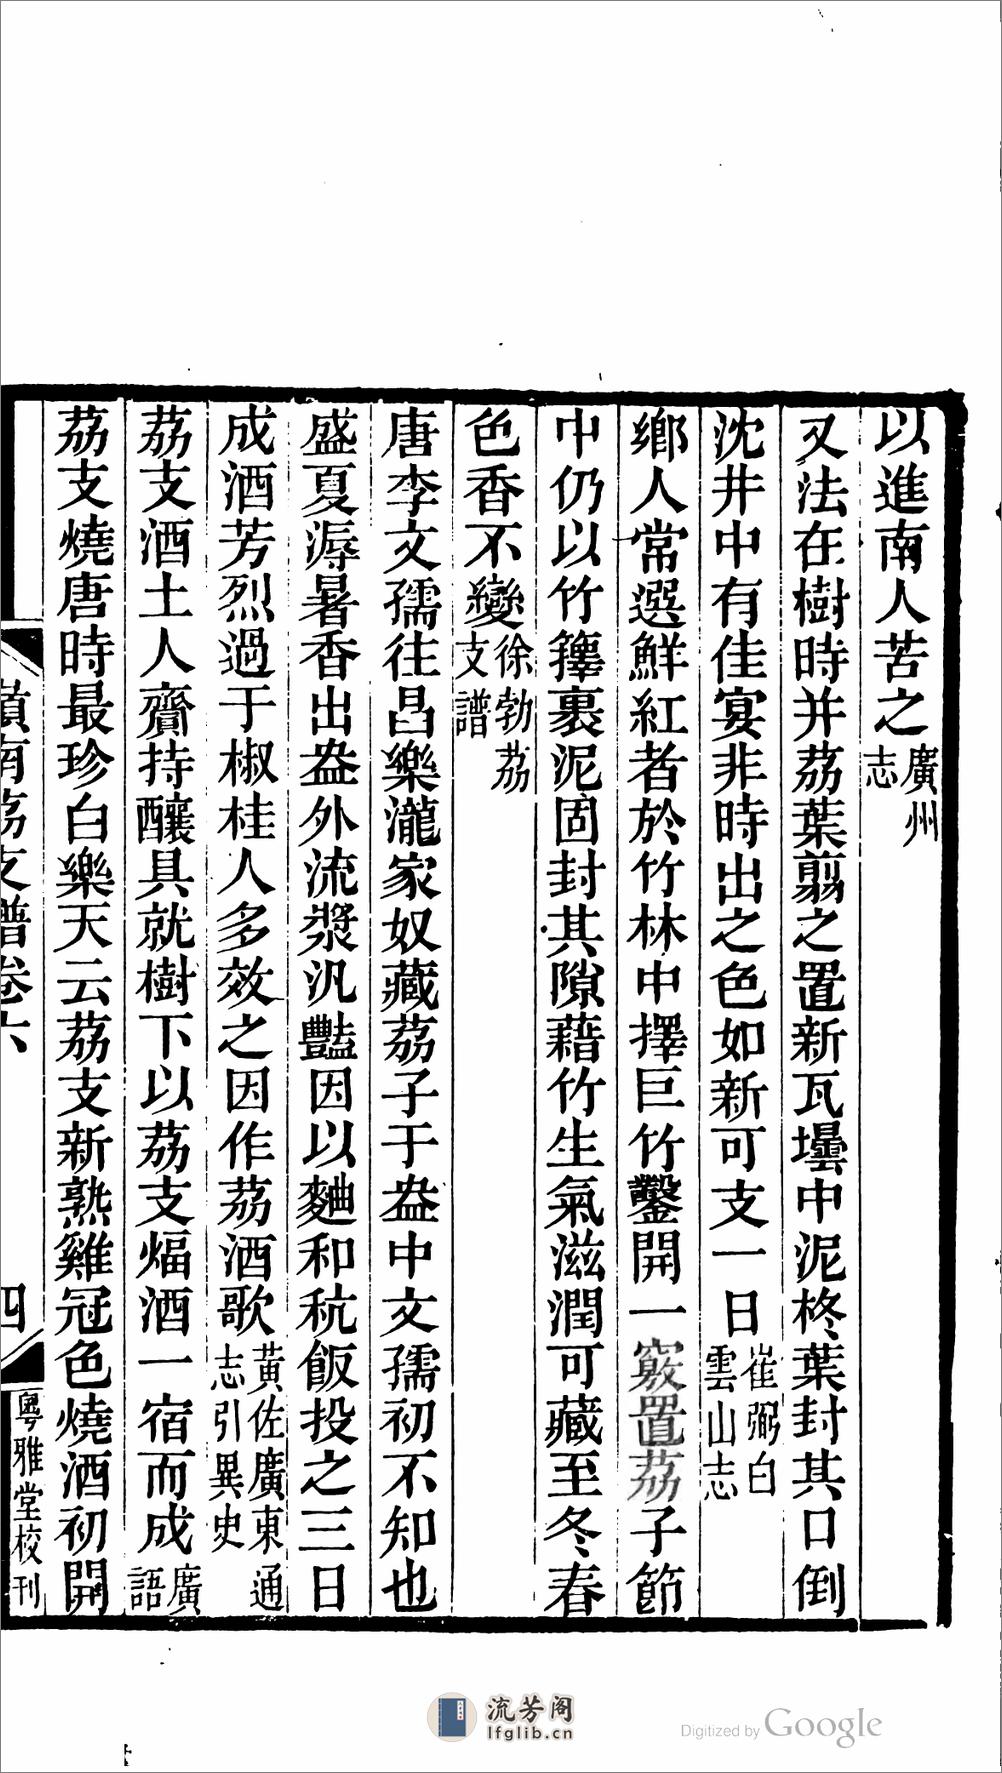 以進南人苦之廣州志
又法在樹時并荔葉翦之置新瓦壜中泥柊葉封其口倒
沈井中有佳宴非時出之色如新可支一日崔弼白雲山志
鄉人常選鮮紅者於竹林中擇巨竹鑿開一竅置荔子節
中仍以竹籜裹泥固封其隙藉竹生氣滋潤可藏至冬春
色香不變徐勃荔支譜
唐李文孺往昌樂瀧家奴藏荔子于盎中文孺初不知也
盛夏溽暑香出盎外流漿汎豔因以麯和秔飯投之三日
成酒芳烈過于椒桂人多效之因作荔酒歌黃佐廣東通志引異史
荔支酒土人齎持釀具就樹下以荔支煏酒一宿而成廣語
荔支燒唐時最珍白樂天云荔支新熟雞冠色燒酒初開
嶺南荔支譜卷六
四
粵雅堂校刊
流芳阁
lfglib.cn
Digitized by Google